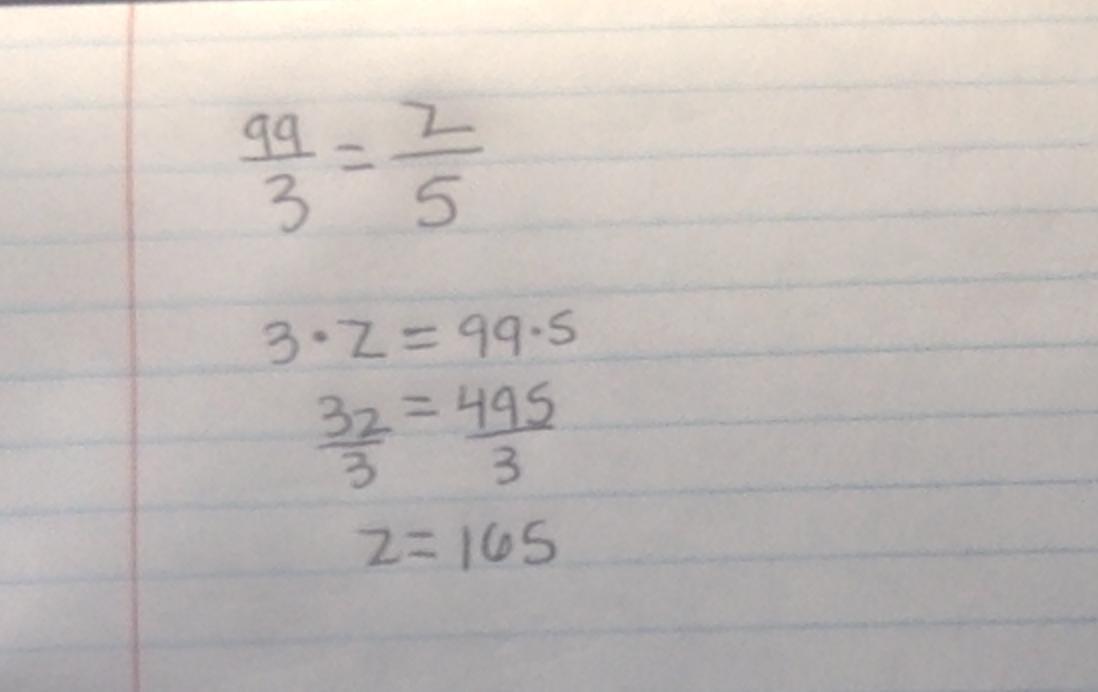 99/3 = z/5
3·z = 99·5
3z/3 = 495/3
z = 165